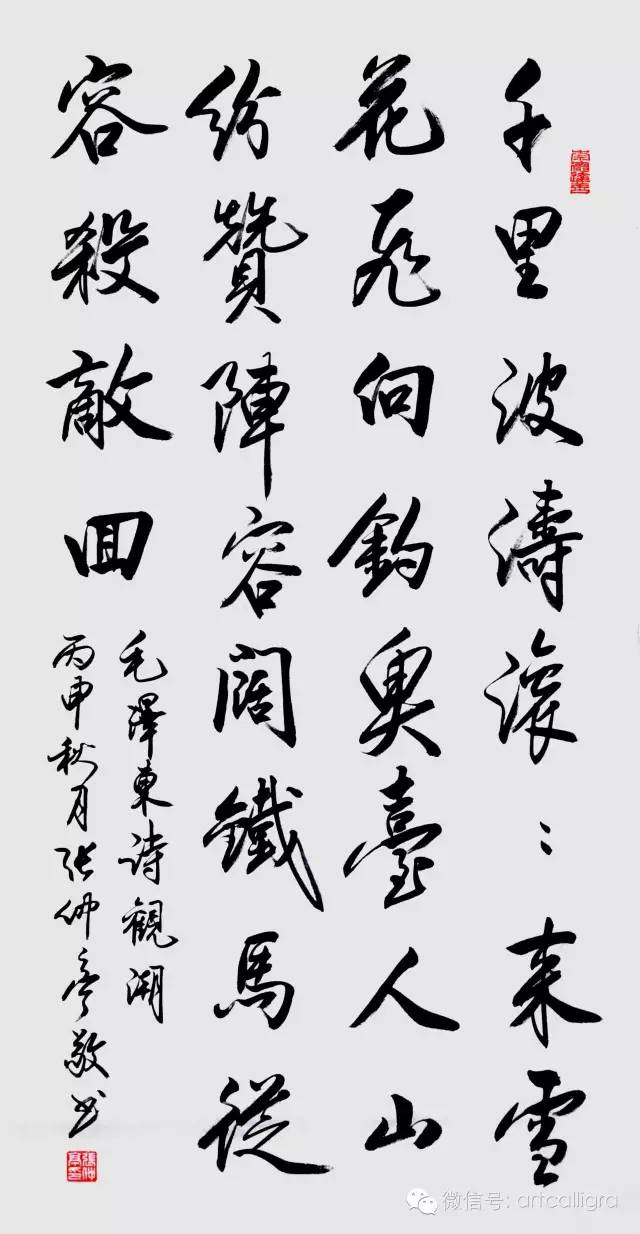 千里波濤滾:来雪
花飛向釣魚臺人山
紛贊陣容闊鐵馬從
容殺敵回
毛澤東詩觀潮
丙申秋月张仲亭敬书
張仲亭印
微信号: artcalligra